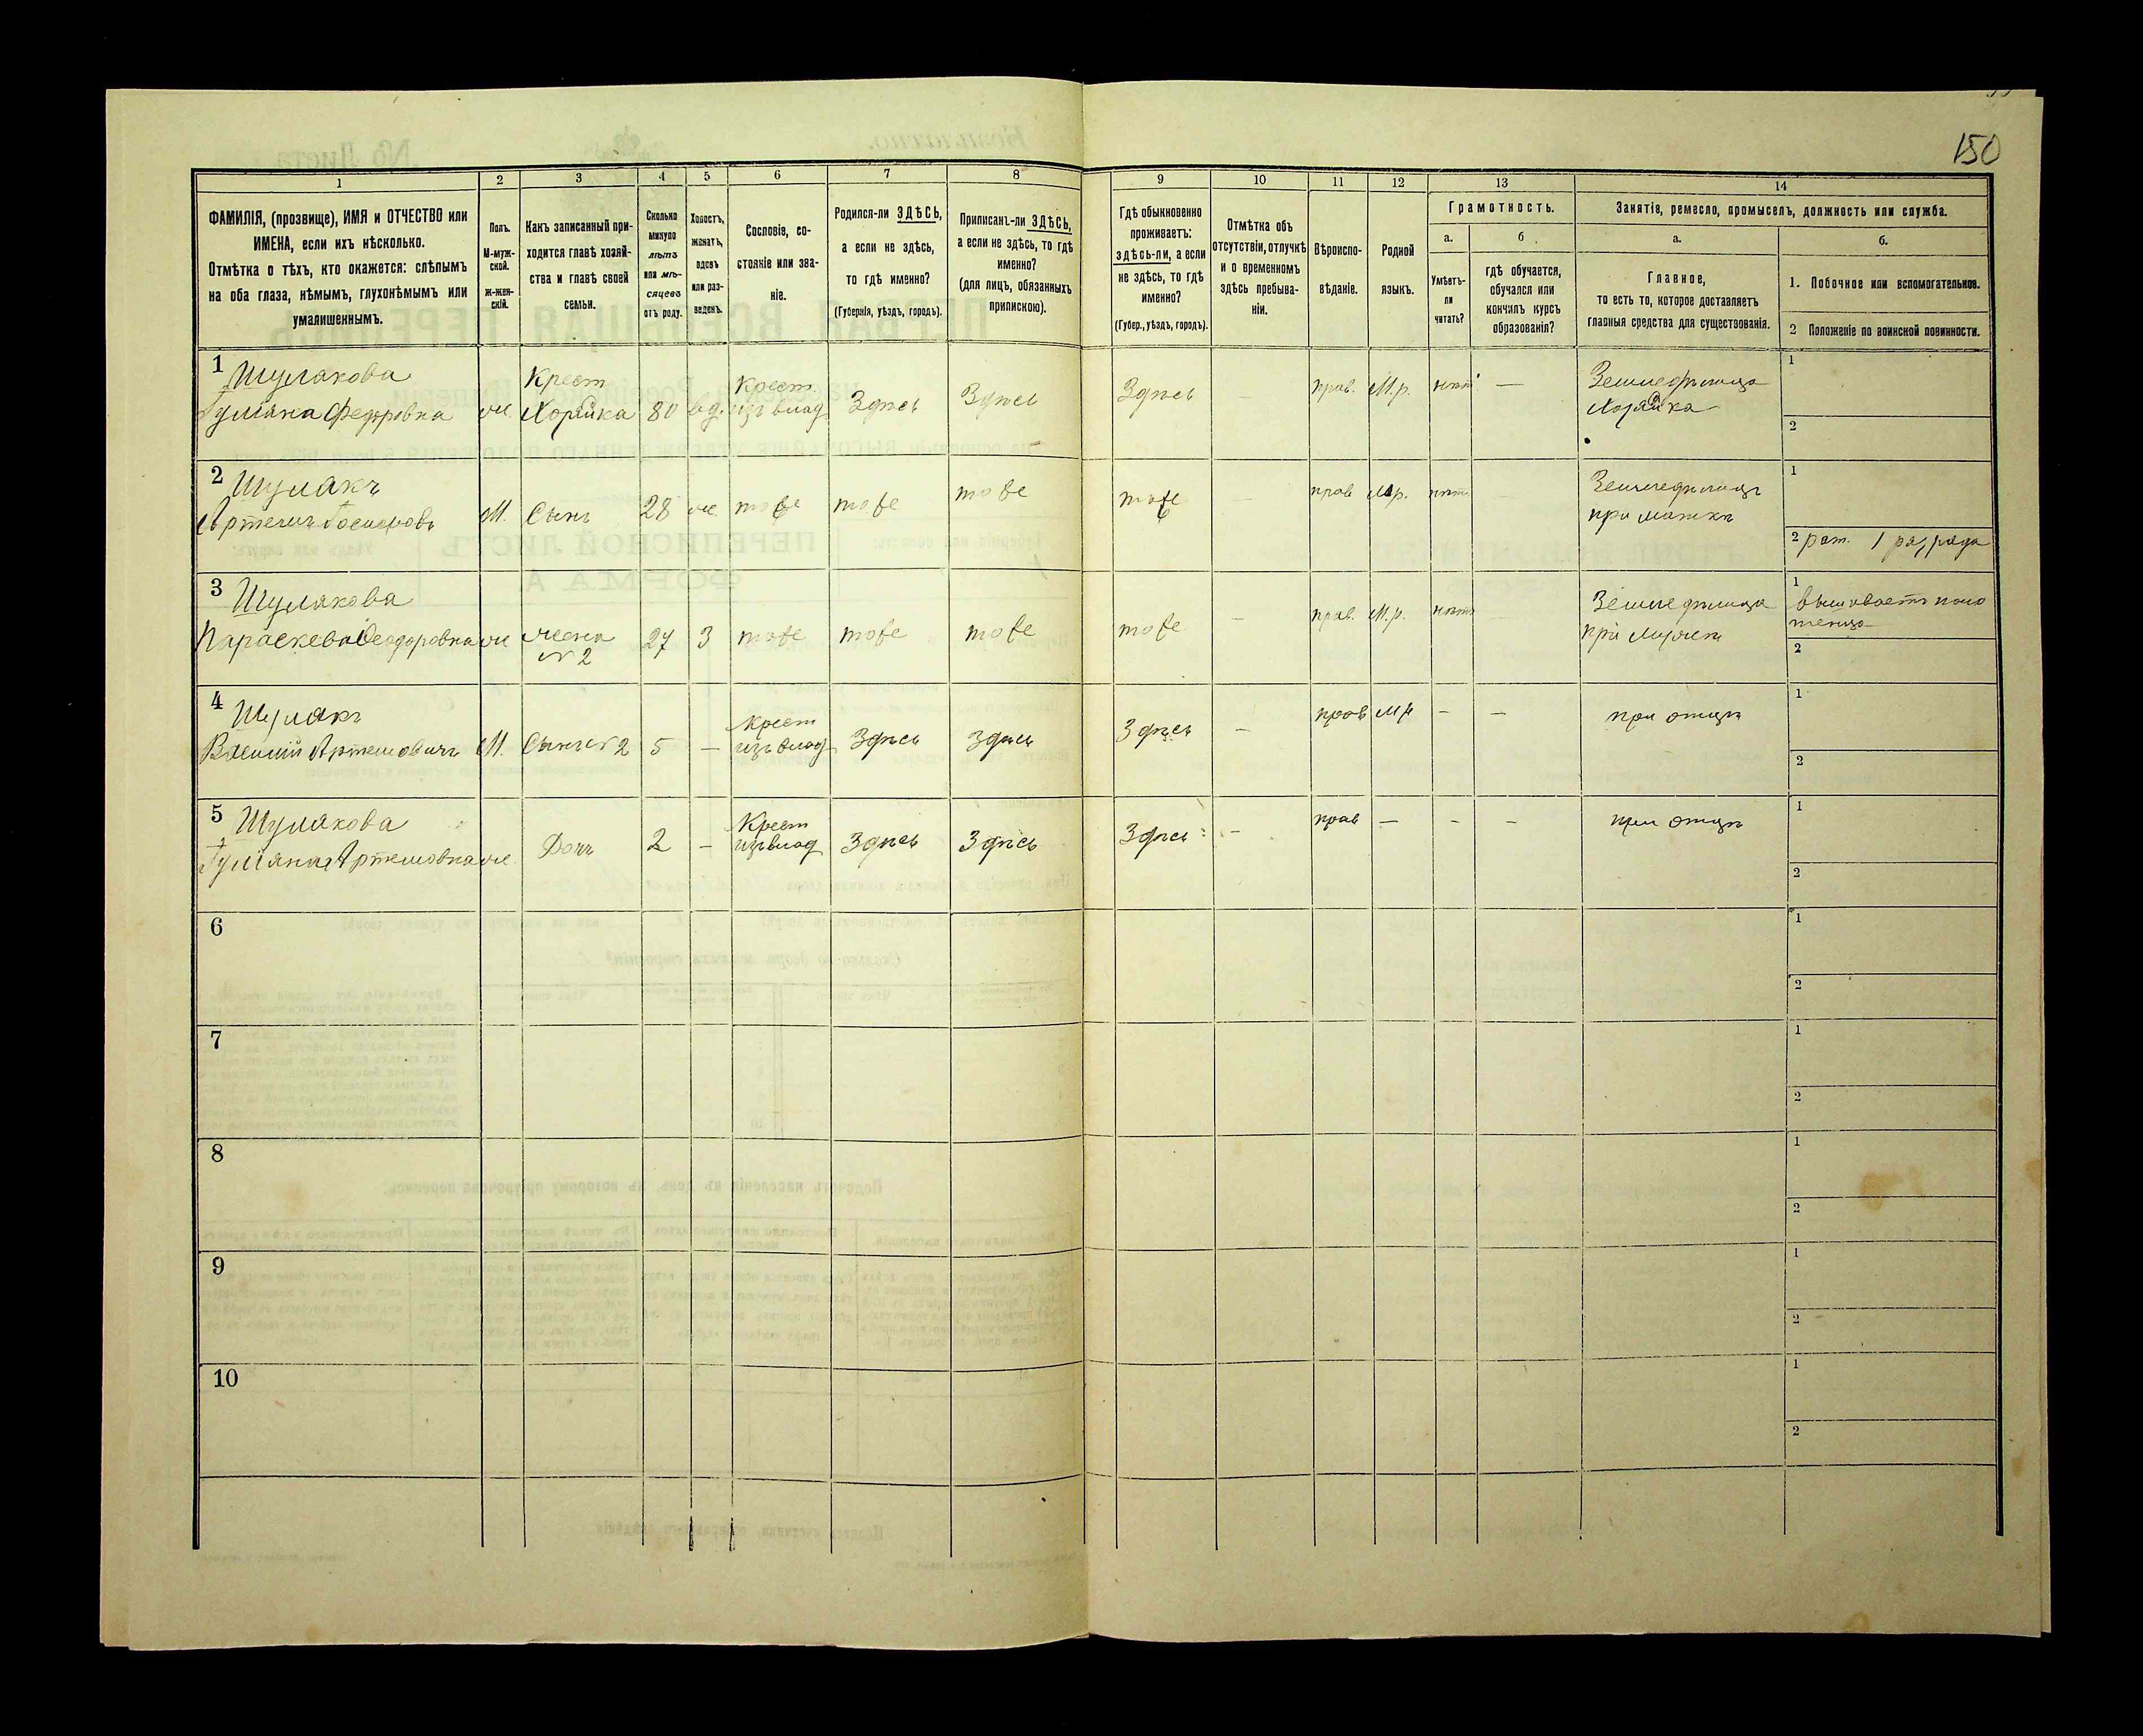 150
1
2
3
4
5
6
7
8
9
10
11
12
13
14
ФАМИЛІЯ, (прозвище), ИМЯ и ОТЧЕСТВО или
ИМЕНА, если ихъ нѣсколько.
Отмѣтка о тѣхъ, кто окажется: слѣпымъ
на оба глаза, нѣмымъ, глухонѣмымъ или
умалишеннымъ.
Полъ.
М-муж-
ской.
ж-жен-
скій.
Какъ записанный при-
ходится главѣ хозяй-
ства и главѣ своей
семьи.
Сколько
минуло
лѣтъ
или мѣ-
сяцевъ
отъ роду.
Холостъ,
женатъ,
вдовъ
или раз-
веденъ.
Сословіе, со-
стояніе или зва-
ніе.
Родился-ли ЗДѢСЬ,
а если не здѣсь,
то гдѣ именно?
(Губернія, уѣздъ, городъ).
Приписанъ-ли ЗДѢСЬ,
а если не здѣсь, то гдѣ
именно?
(для лицъ, обязанныхъ
припискою).
Гдѣ обыкновенно
проживаетъ:
здѣсь-ли, а если
не здѣсь, то гдѣ
именно?
(Губер., уѣздъ, городъ).
Отмѣтка объ
отсутствіи, отлучкѣ
и о временномъ
здѣсь пребыва-
ніи.
Вѣроиспо-
вѣданіе.
Родной
языкъ.
Грамотность.
а.
Умѣетъ-
ли
читать?
б.
гдѣ обучается,
обучался или
кончилъ курсъ
образованія?
Занятіе, ремесло, промыселъ, должность или служба.
а.
Главное,
то есть то, которое доставляетъ
главныя средства для существованія.
б.
1. Побочное или вспомогательное.
2 Положеніе по воинской повинности.
1 Шулякова
Іуліяна Федоровна
ж.
Крест
Хозяйка
80
вд.
Крест.
изъ влад
Здѣсь
Здѣсь
Здѣсь
—
прав.
М.р.
нѣтъ
—
Земледѣлица
Хозяйка
1
2
2 Шулякъ
Артемъ
М.
Сынъ
28
ж.
тоже
тоже
тоже
тоже
—
прав
М.р.
нѣтъ
—
Земледѣлецъ
при маткѣ
1
2 рат. 1 разряда
3 Шулякова
Параскева Ѳеодоровна
ж
жена
№ 2
27
З
тоже
тоже
тоже
тоже
—
прав.
М.р.
нѣтъ
Земледѣлица
при мужѣ
1
вышиваетъ поло
тенца
2
4 Шулякъ
Василій Артемовичъ
М.
Сынъ № 2
5
—
Крест
изъ влад
Здѣсь
Здѣсь
Здѣсь
—
прав
М р
—
—
при отцѣ
1
2
5 Шулякова
Іуліяна Артемовна
ж.
Дочь
2
—
Крест
изъ влад
Здѣсь
Здѣсь
Здѣсь
—
прав
—
—
—
при отцѣ
1
2
6
1
2
7
1
2
8
1
2
9
1
2
10
1
2